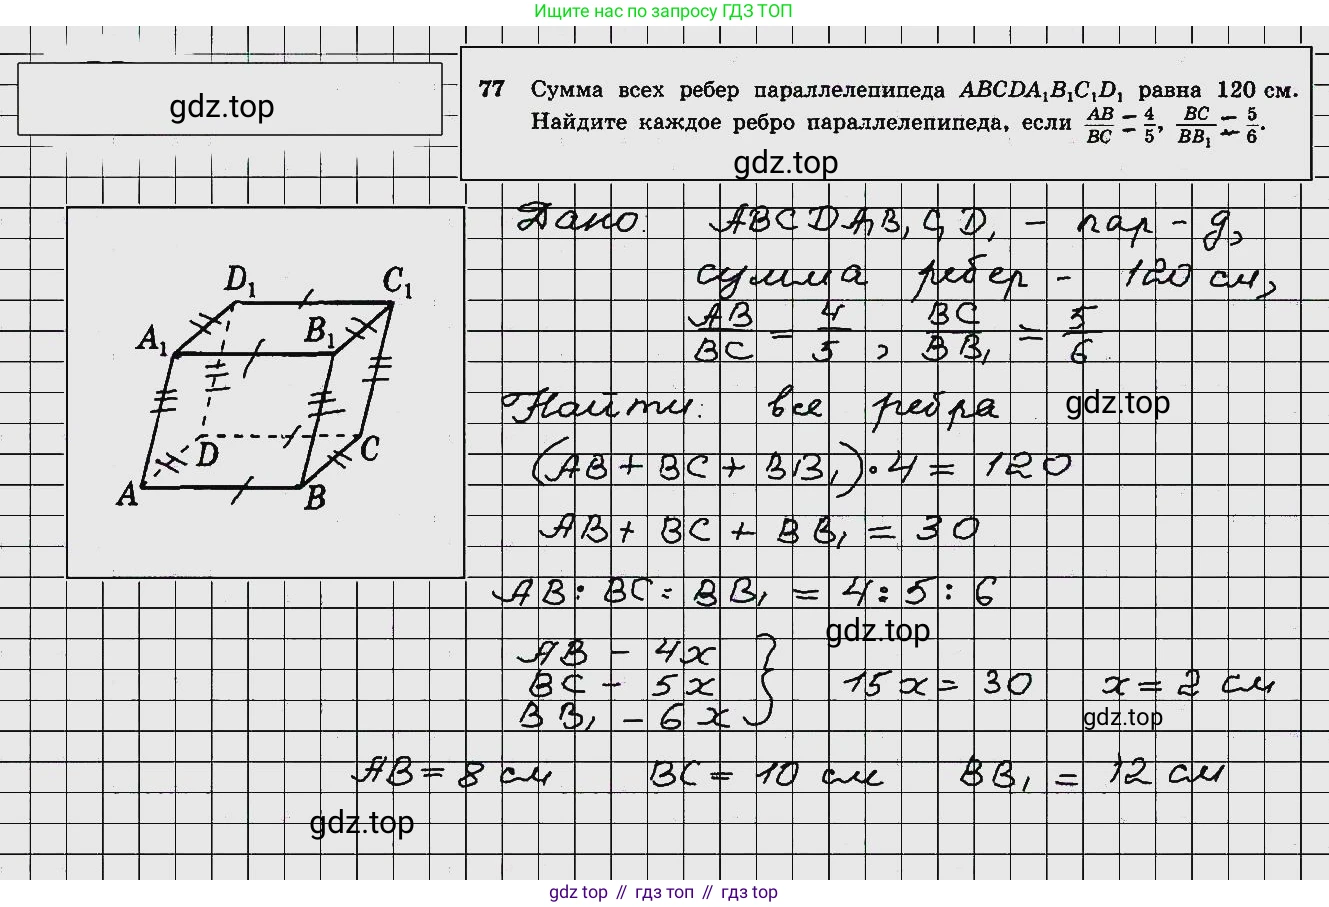 Ищите нас по запросу ГДЗ ТОП
gdz.top
77 Сумма всех ребер параллелепипеда ABCDA₁B₁C₁D₁ равна 120 см.
Найдите каждое ребро параллелепипеда, если AB/BC = 4/5, BC/BB₁ = 5/6.
gdz.top
D₁ C₁
A₁ B₁
D C
A B
Дано: ABCDA₁B₁C₁D₁ - пар-д,
сумма ребер - 120 см,
AB/BC = 4/5, BC/BB₁ = 5/6
Найти: все ребра
gdz.top
(AB + BC + BB₁) · 4 = 120
AB + BC + BB₁ = 30
AB : BC : BB₁ = 4 : 5 : 6
gdz.top
AB - 4x
BC - 5x
BB₁ - 6x
} 15x = 30 x = 2 см
gdz.top
AB = 8 см BC = 10 см BB₁ = 12 см
gdz.top
gdz top // гдз топ // gdz top